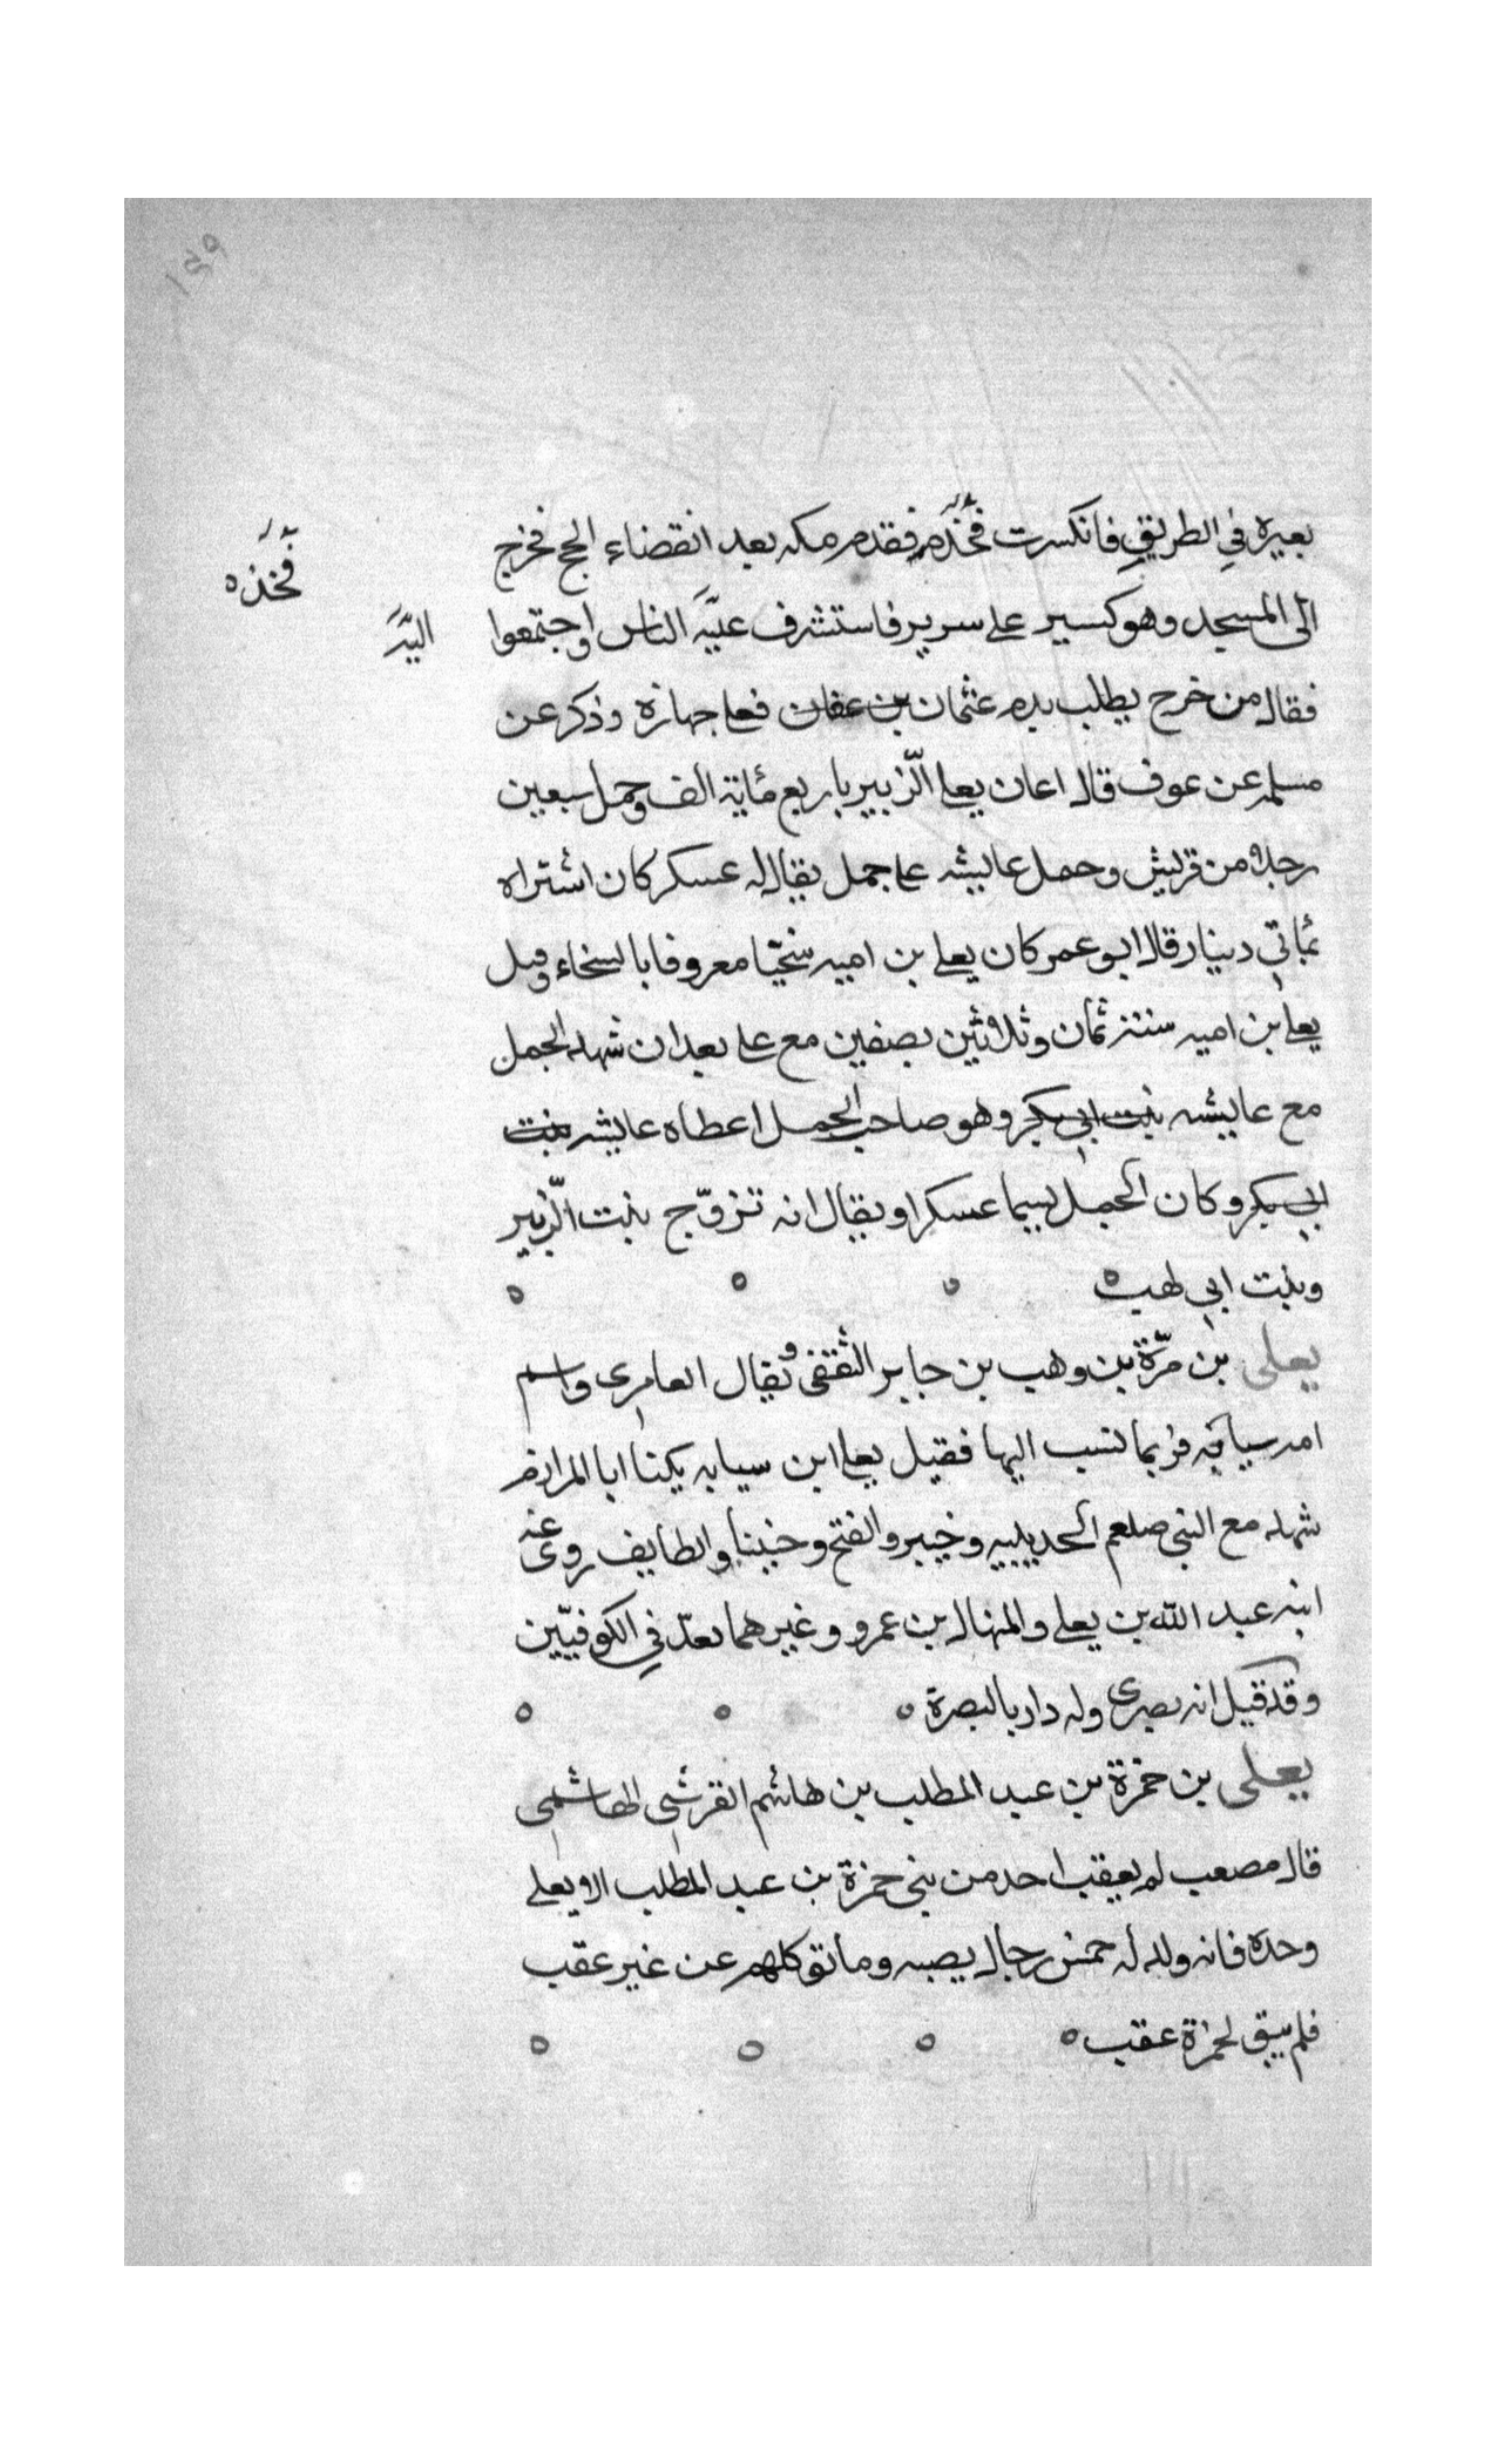 ١٤٩
بعيره في الطريق فانكسرت فخذه فقدم مكه بعد انقضاء الحج فخرج
فخذه
الى المسجد وهو كسير على سرير فاستشرف عليه الناس واجتمعوا
اليه
فقال من خرج يطلب بدم عثمان بن عفان فعلي جهازه وذكر عن
مسلمه عن عوف قال اعان يعلي الزّبير باربع مٔاية الف وحمل سبعين
رجلا من قريش وحمل عايشه على جمل يقال له عسكر كان اشتراه
بمأتي دينار قال ابو عمر كان يعلي بن اميه سخيّا معروفا بالسخاء وقيل
يعلي بن اميه سنة ثمان وثلاثين بصفين مع علي بعد ان شهد الجمل
مع عايشه بنت ابي بكر وهو صاحب الجمل اعطاه عايشه بنت
ابي بكر وكان الجمل يسما عسكرا ويقال انه تزوّج بنت الزّبير
وبنت ابي لهب ٥ ٥ ٥ ٥
يعلى بن مرّة بن وهب بن جابر الثقفى ويقال العامرى واسم
امه سيابه فربما نسب اليها فقيل يعلي ابن سيابه يكنا ابا المرازم
شهد مع النبى صلعم الحديبيه وخيبر والفتح وحنينا والطايف روى عنه
ابنه عبد الله بن يعلي والمنهال بن عمرو وغيرهما يعدّ في الكوفييّن
وقد قيل انه بصرى وله دار بالبصرة ٥ ٥ ٥
يعلى بن حمزة بن عبد المطلب بن هاشم القرشى الهاشمى
قال مصعب لم يعقب احد من بنى حمزة بن عبد المطلب الا يعلي
وحده فانه ولد له خمس رجال لصلبه وماتو كلهم عن غير عقب
فلم يبق لحمزة عقب ٥ ٥ ٥ ٥